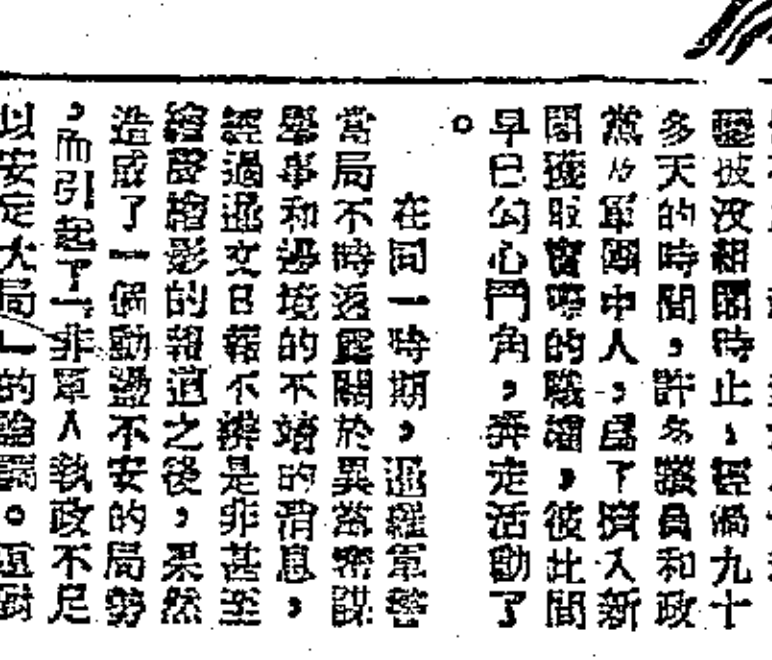 被汲組閣時止，經過九十
多天的時間，許多議員和政
黨及軍團中人，為了擠入新
閣獲取實際的職權，彼此間
早已勾心鬥角，奔走活動了
。
在同一時期，暹羅軍警
當局不時透露關於異常密謀
舉事和邊境的不靖的消息，
經過暹文日報不辨是非甚至
繪聲繪影的報道之後，果然
造成了一個動盪不安的局勢
，而引起了「非軍人執政不足
以安定大局」的論調。這對